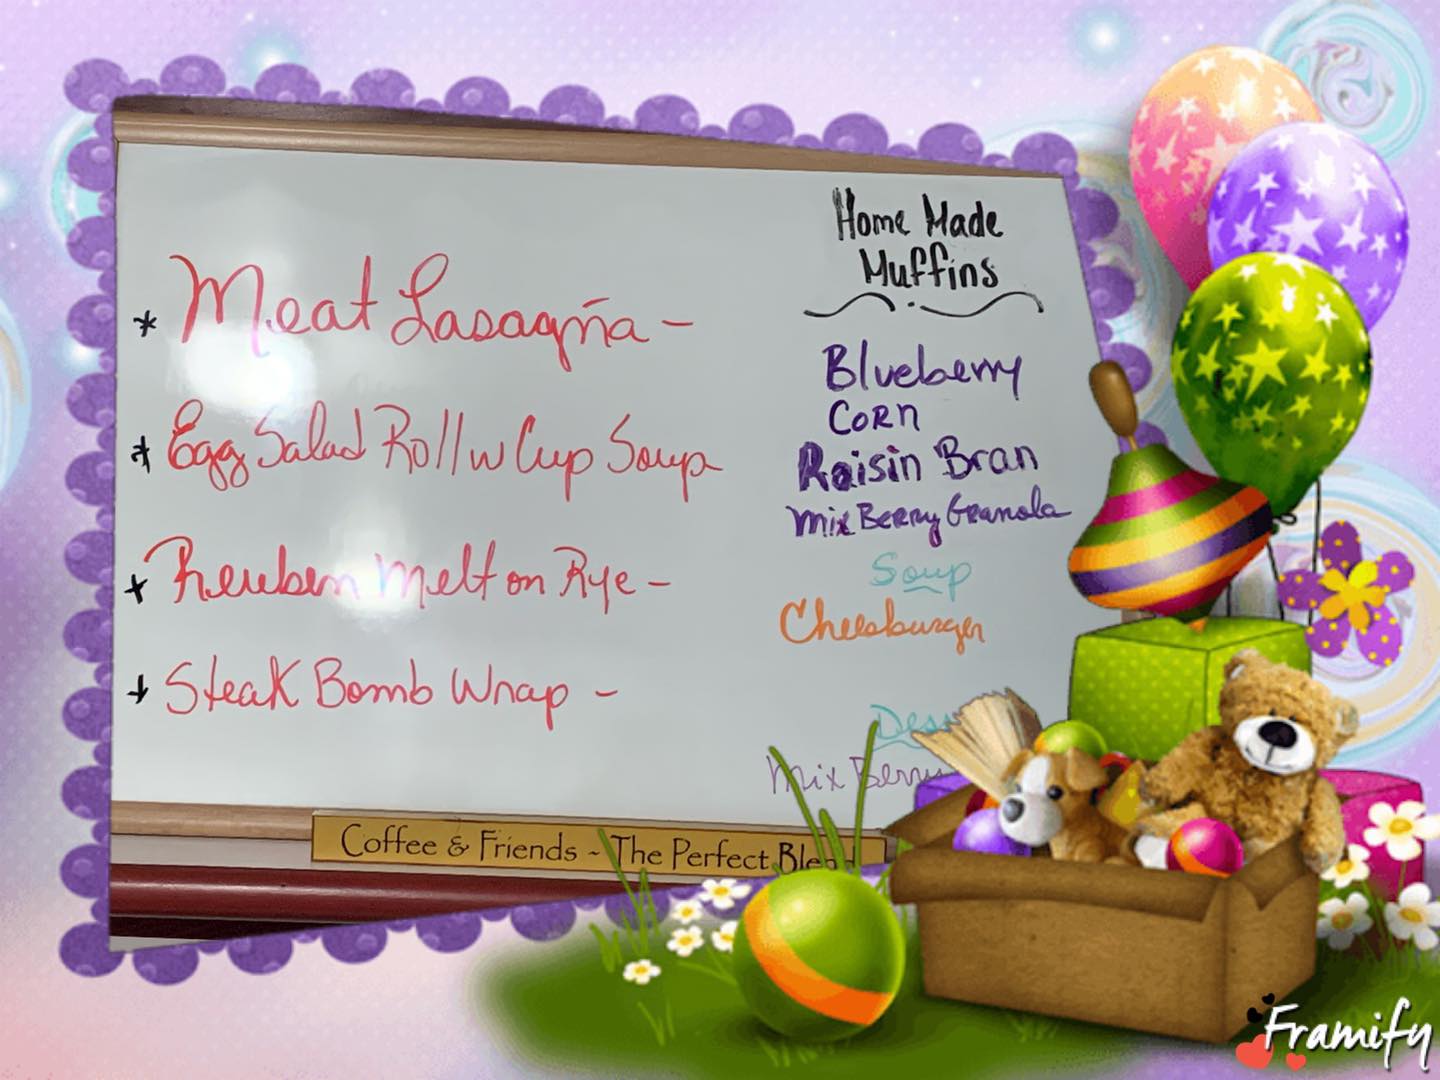 * Meat Lasagña -
* Egg Salad Roll w Cup Soup
* Reuben Melt on Rye -
* Steak Bomb Wrap -
Home Made
Muffins
Blueberry
CORN
Raisin Bran
Mix Berry Granola
Soup
Cheesburger
Mix Berry
Coffee & Friends ~ The Perfect Blend
Framify